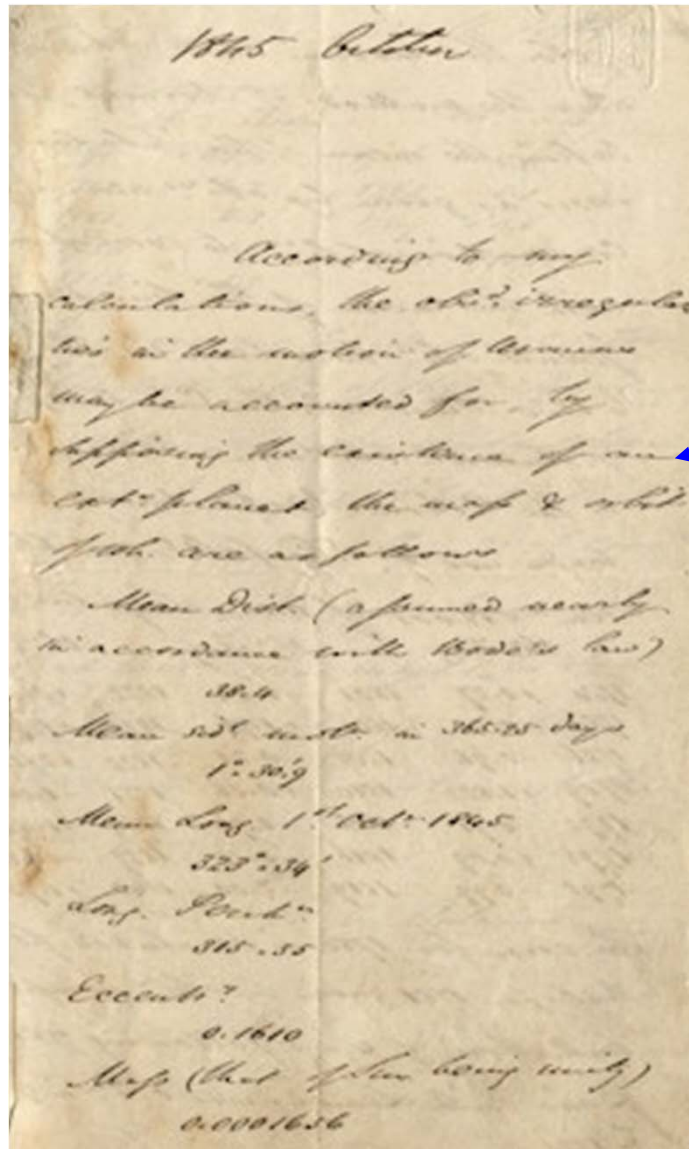 1845 October
According to my
calculations, the obsd. irregulari
ties in the motion of Uranus
may be accounted for, by
supposing the existence of an
extr. planet, the mass & orbit
of wh. are as follows
Mean Dist. (assumed nearly
in accordance with Bode's law)
38.4
Mean sidl. motn. in 365.25 days
1°.30'.9
Mean Long. 1st Octr. 1845
323°.34'
Long. Perihn.
315.55
Eccentry.
0.1610
Mass (that of Sun being unity)
0.0001656